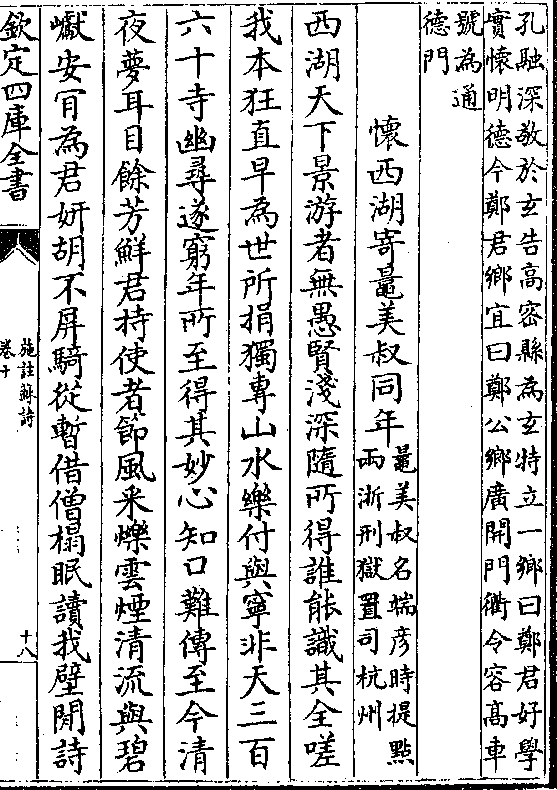 孔融深敬於玄告高密縣為玄特立一鄉曰鄭君好學
實懷明德今鄭君鄉宜曰鄭公鄉廣開門衢令容高車
號為通
德門
懷西湖寄鼂美叔同年
鼂美叔名端彦時提㸃
兩浙刑獄置司杭州
西湖天下景游者無愚賢淺深隨所得誰能識其全嗟
我本狂直早為世所捐獨專山水樂付與寧非天三百
六十寺幽尋遂窮年所至得其妙心知口難傳至今清
夜夢耳目餘芳鮮君持使者節風采爍雲煙清流與碧
巘安肎為君妍胡不屏騎從暫借僧榻眠讀我壁閒詩
欽定四庫全書
施註蘇詩
卷十
十八